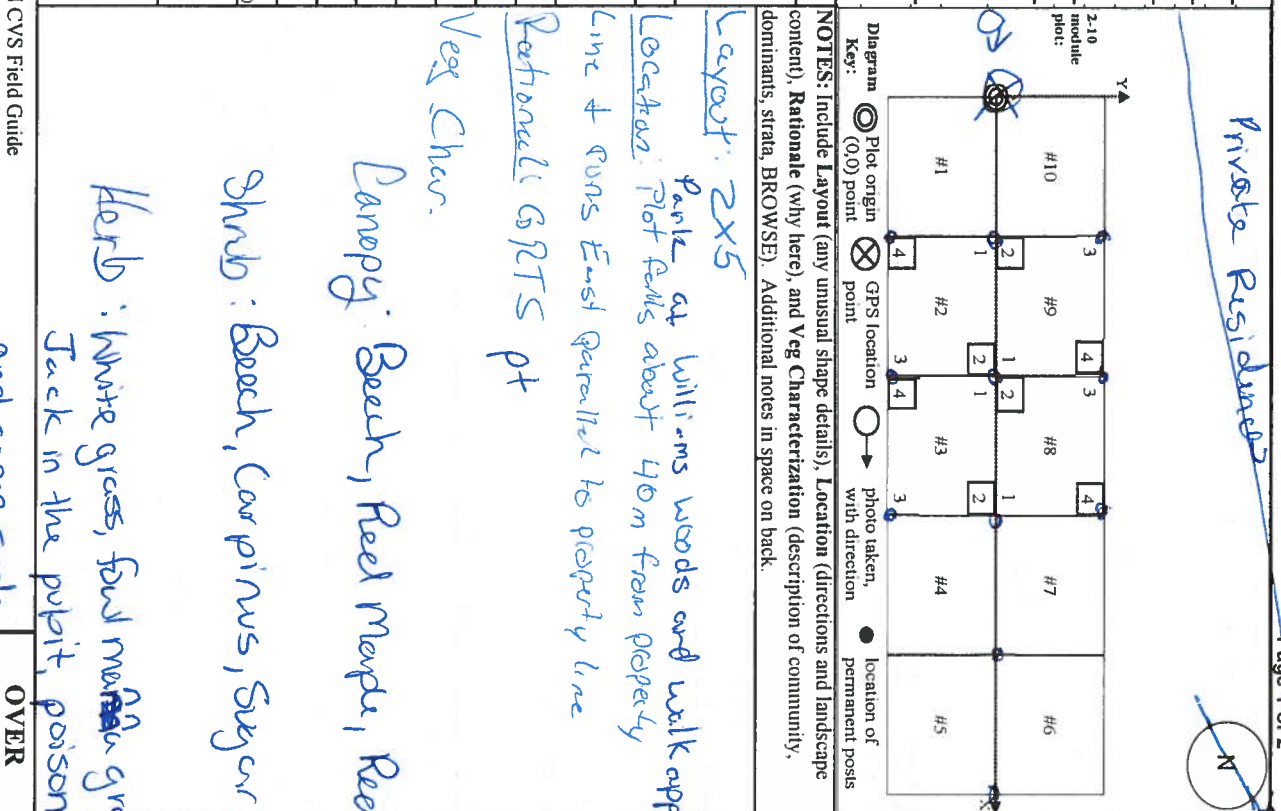 Page 1 of 2
Private Residence
N
2-10
module
plot:
Y
X
#10 #9 #8 #7 #6
3 3
4 4
2 1 2 1
1 2 1 2
4 3 4 3
#1 #2 #3 #4 #5
Diagram Key: Plot origin (0,0) point GPS location point photo taken, with direction location of permanent posts
NOTES: Include Layout (any unusual shape details), Location (directions and landscape
content), Rationale (why here), and Veg Characterization (description of community,
dominants, strata, BROWSE). Additional notes in space on back.
Layout: 2x5
Park at Williams woods and walk app
Location: Plot falls about 40m from property
Line & runs East parallel to property line
Rationale: GRTS pt
Veg Char.
Canopy: Beech, Red Maple, Red
Shrub: Beech, Carpinus, Sugar
Herb: White grass, fowl manna gra
Jack in the pulpit, poison
OVER
CVS Field Guide